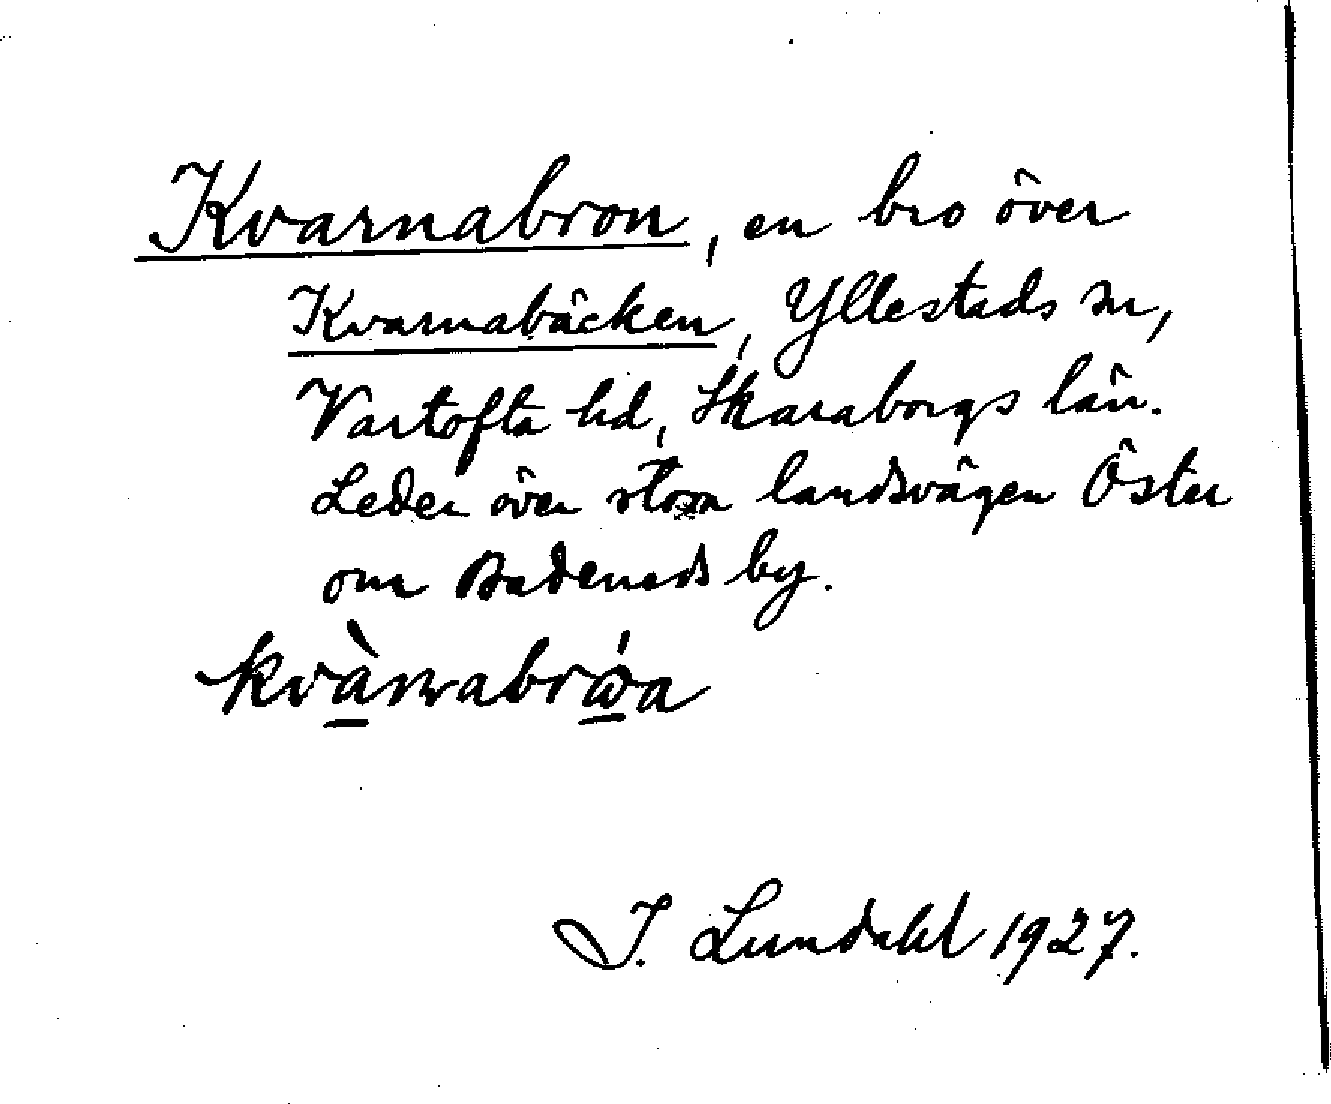 Kvarnabron, en bro över
Kvarnabäcken, Yllestads sn,
Vartofta hd, Skaraborgs län.
Leder över stora landsvägen Öster
om Badeneds by.
kvànnabróa
I. Lundahl 1927.